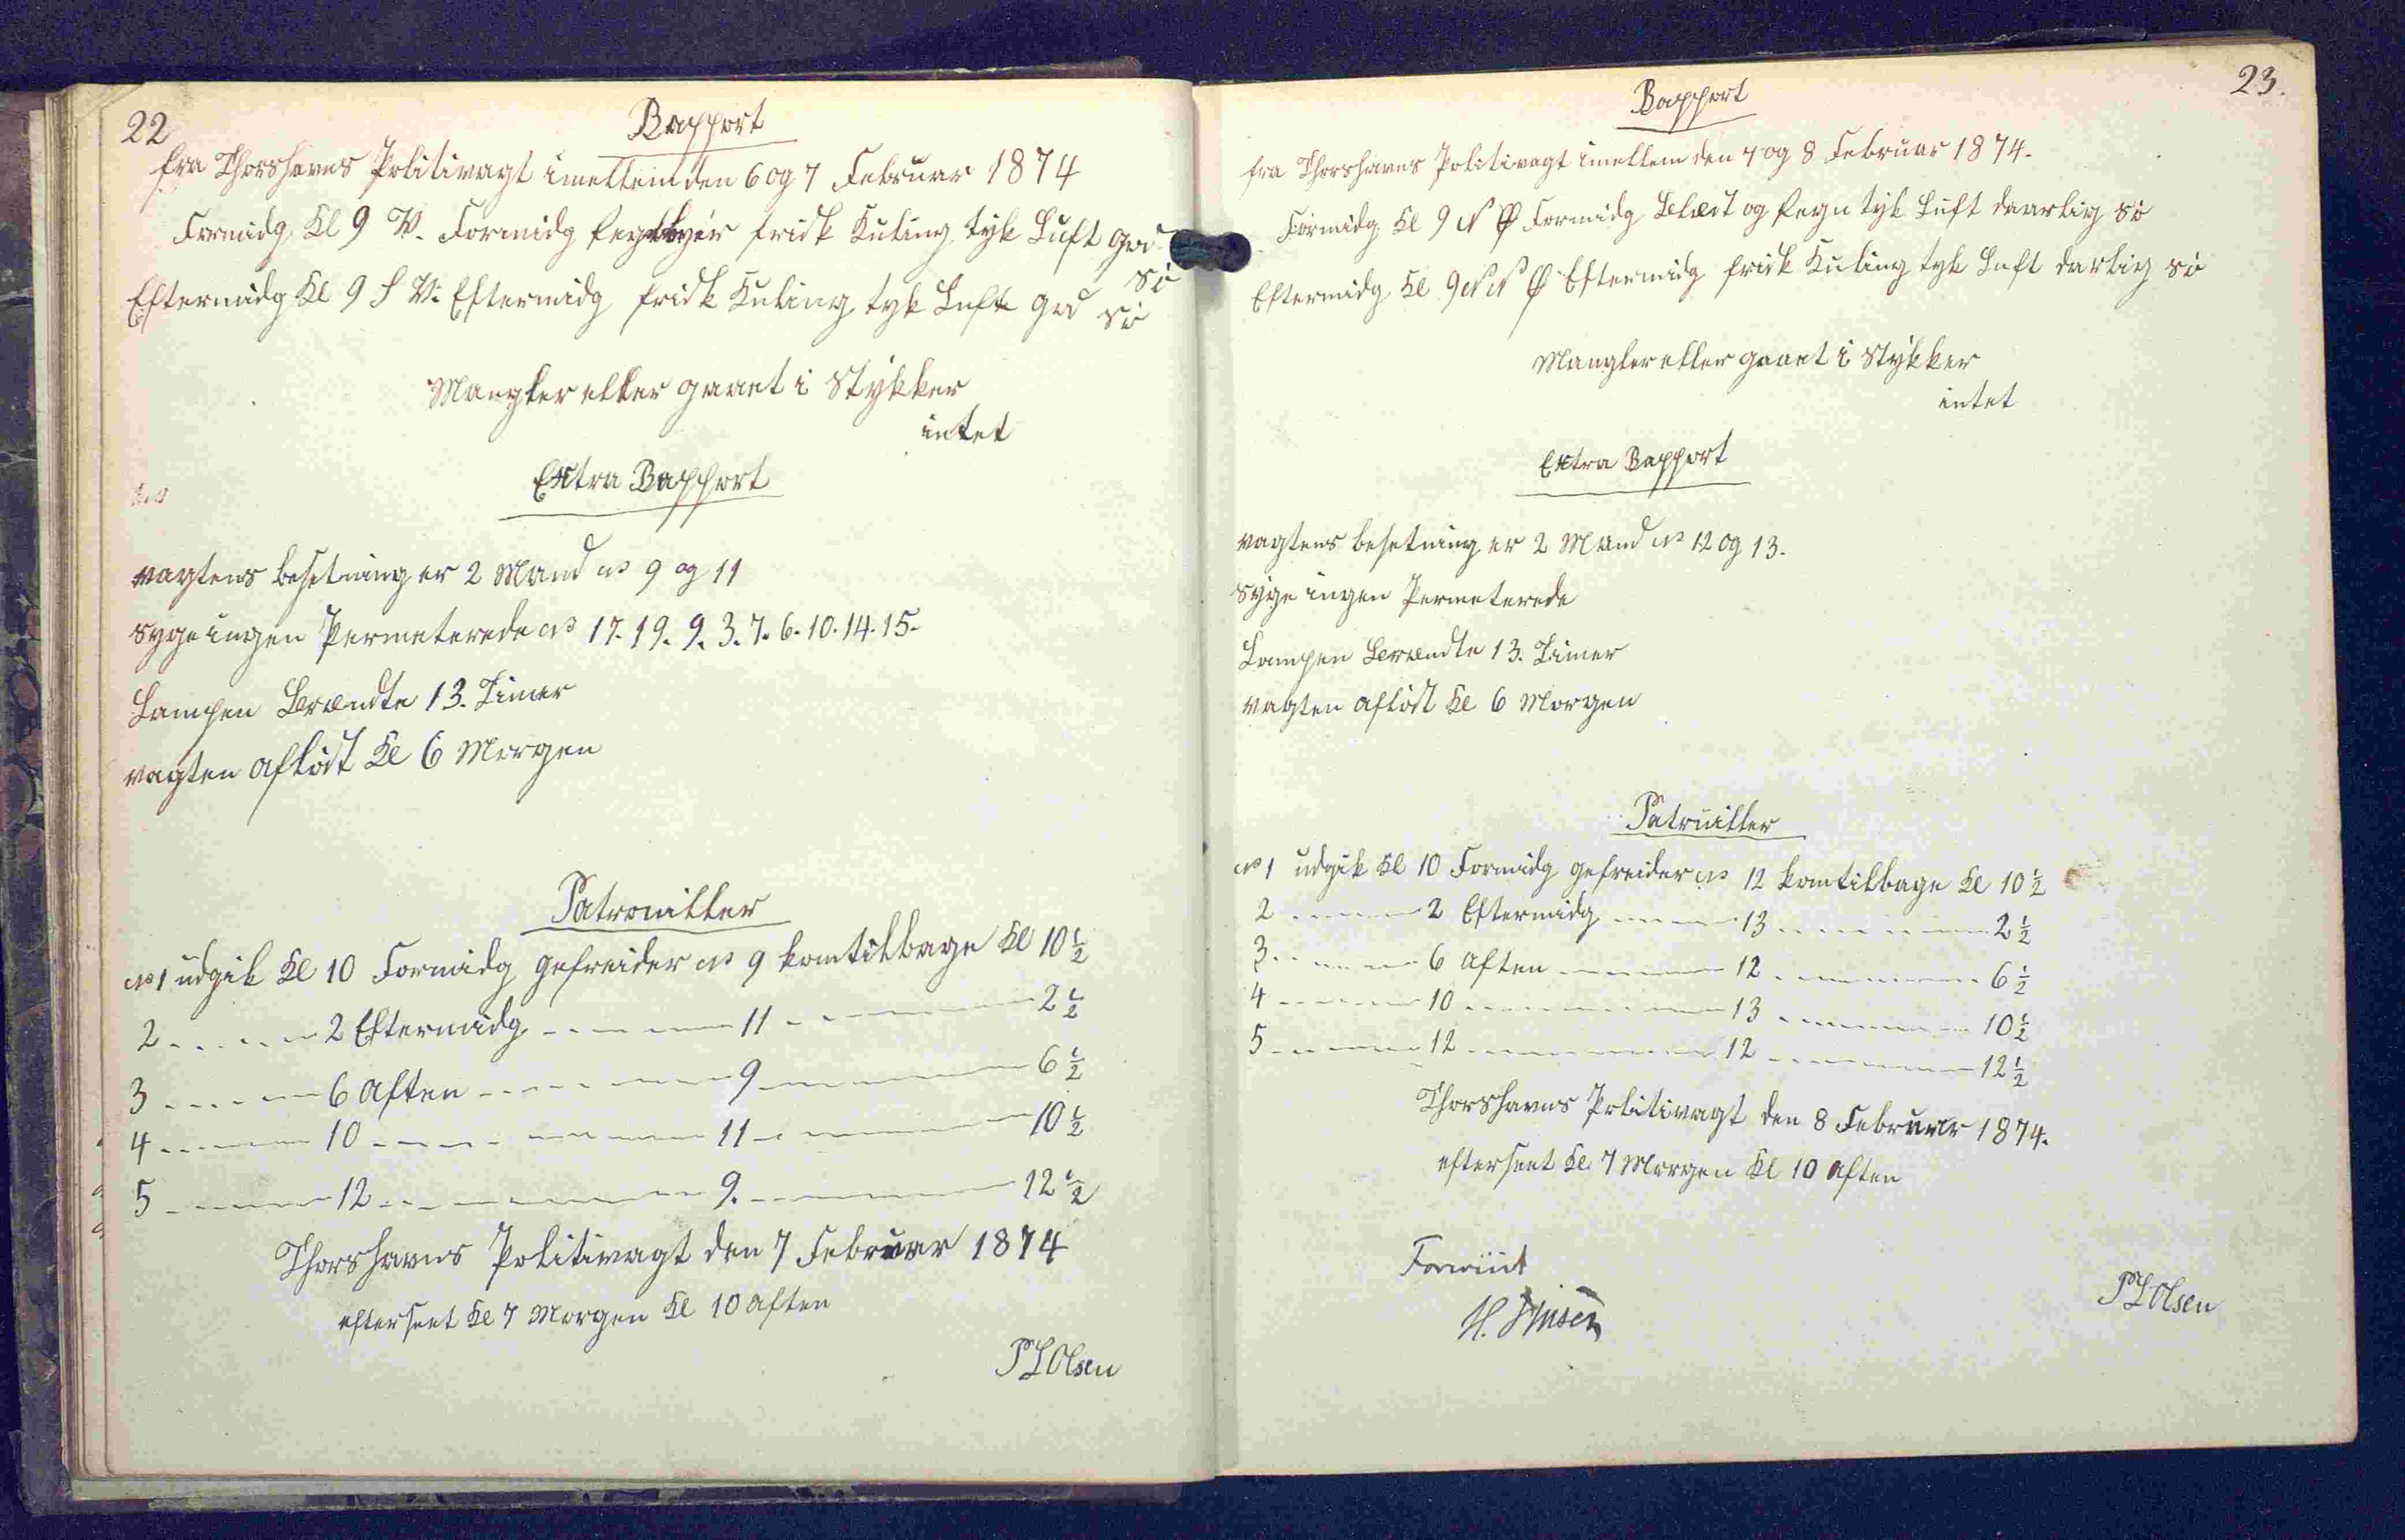 22
Rapport
fra Thorshavns Politivagt imellem den 6 og 7 Februar 1874
Formidg Kl 9 V. Formidg frisk Kuling tyk Luft god
sö
Eftermidg Kl 9 S V. Eftermidg frisk Kuling tyk Luft god sö
Mangler eller gaaet i Stykker
intet
Extra Rapport
vagtens besetning er 2 Mand No 9 og 11
syge ingen Permeterede No 17. 19. 9. 3. 7. 6. 10. 14. 15.
Lampen Brændte 13. Timer
vagten aflöst Kl 6 Morgen
Patrouiller
No 1 udgik Kl 10 Formidg gefreider No 9 kom tilbage Kl 10 1/2
2 - - - - 2 Eftermidg - - - - 11 - - - - 2 1/2
3 - - - - 6 Aften - - - - 9 - - - - 6 1/2
4 - - - - 10 - - - - 11 - - - - 10 1/2
5 - - - - 12 - - - - 9. - - - - 12 1/2
Thorshavns Politivagt den 7 Februar 1874
efterseet Kl 7 Morgen Kl 10 Aften
P L Olsen
23.
Rapport
fra Thorshavns Politivagt imellem den 7 og 8 Februar 1874.
Formidg Kl 9 N Ø Formidg Blæst og Regn tyk Luft daarlig sö
Eftermidg Kl 9 N N Ø Eftermidg frisk Kuling tyk Luft darlig sö
Mangler eller gaaet i Stykker
intet
Extra Rapport
vagtens besetning er 2 Mand No 12 og 13.
syge ingen Permeterede
Lampen Brændte 13. Timer
vagten aflöst Kl 6 Morgen
Patruiller
No 1 udgik Kl 10 Formidg gefreider No 12 kom tilbage Kl 10 1/2
2 - - - - 2 Eftermidg - - - - 13 - - - - 2 1/2
3 - - - - 6 Aften - - - - 12 - - - - 6 1/2
4 - - - - 10 - - - - 13 - - - - 10 1/2
5 - - - - 12 - - - - 12 - - - - 12 1/2
Thorshavns Politivagt den 8 Februar 1874.
efterseet Kl 7 Morgen Kl 10 Aften
Foreviist
H.
P L Olsen